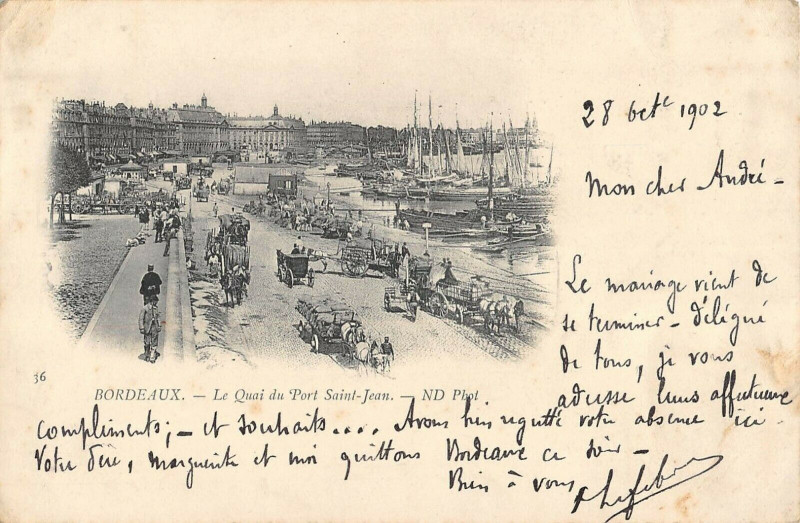 28 octe 1902
Mon cher André -
Le mariage vient de
se terminer - délégué
de tous, je vous
adresse leurs affectueux
36
BORDEAUX. — Le Quai du Port Saint-Jean. — ND Phot
compliments; - et souhaits.... Avons bien regretté votre absence ici -
Votre père, Marguerite et moi quittons Bordeaux ce soir -
Bien à vous
Lefebvre